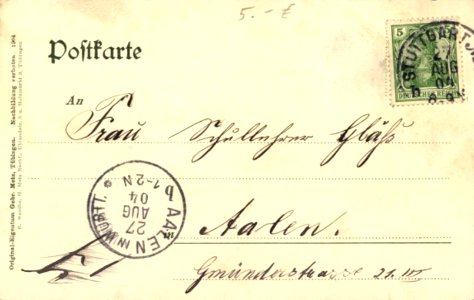 5.- €
Postkarte
5
STUTTGART
27
AUG
04
An
Frau Schullehrer Gläß
Aalen.
Gmünderstrasse 21. III
AALEN IN WÜRTT.
27
AUG
04
b 1-2 N
Original-Eigentum Gebr. Metz, Tübingen. Nachbildung verboten. 1904